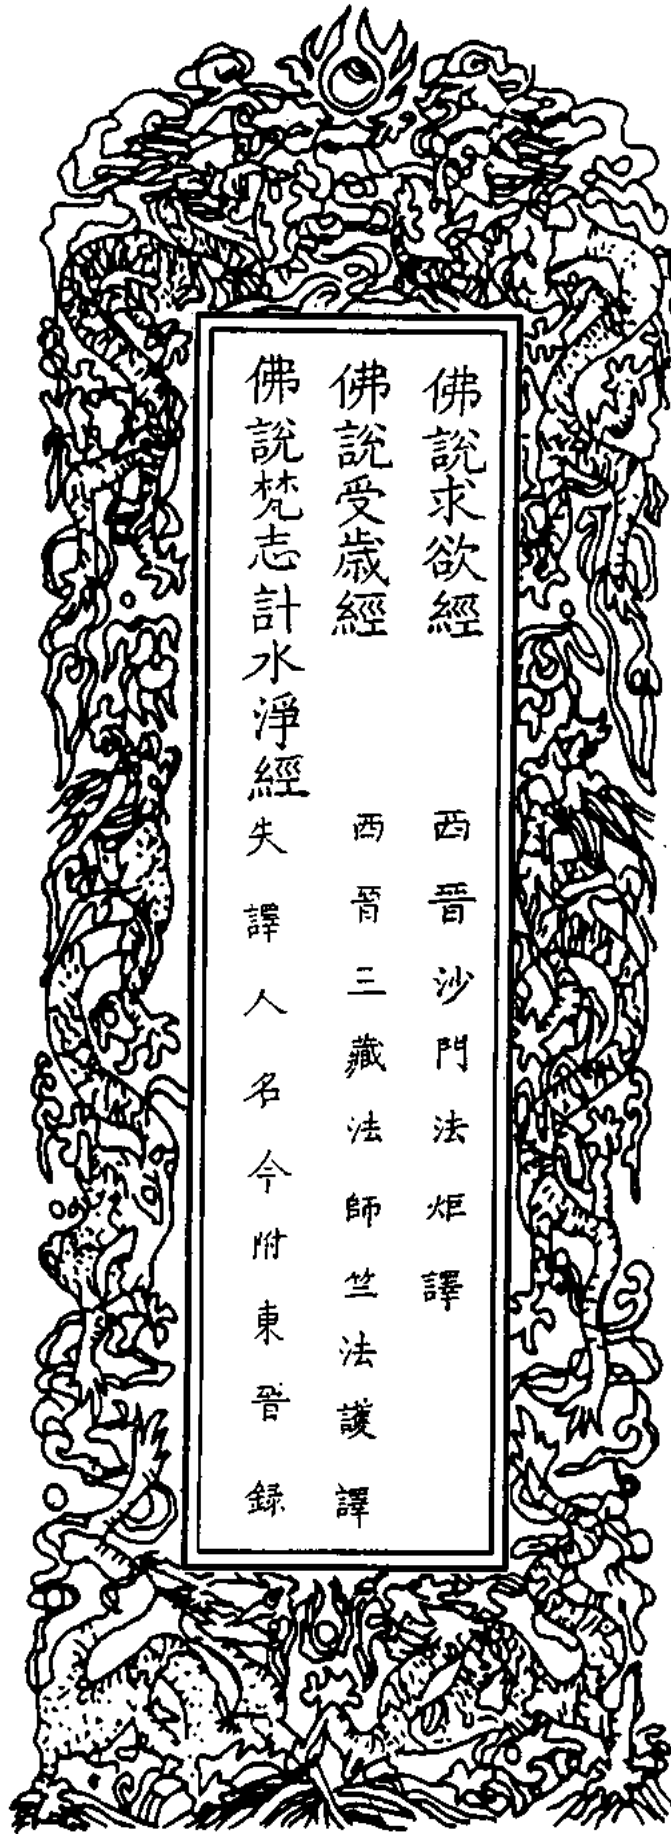 佛說求欲經 西晉沙門法炬譯
佛說受歲經 西晉三藏法師竺法護譯
佛說梵志計水淨經 失譯人名今附東晉錄